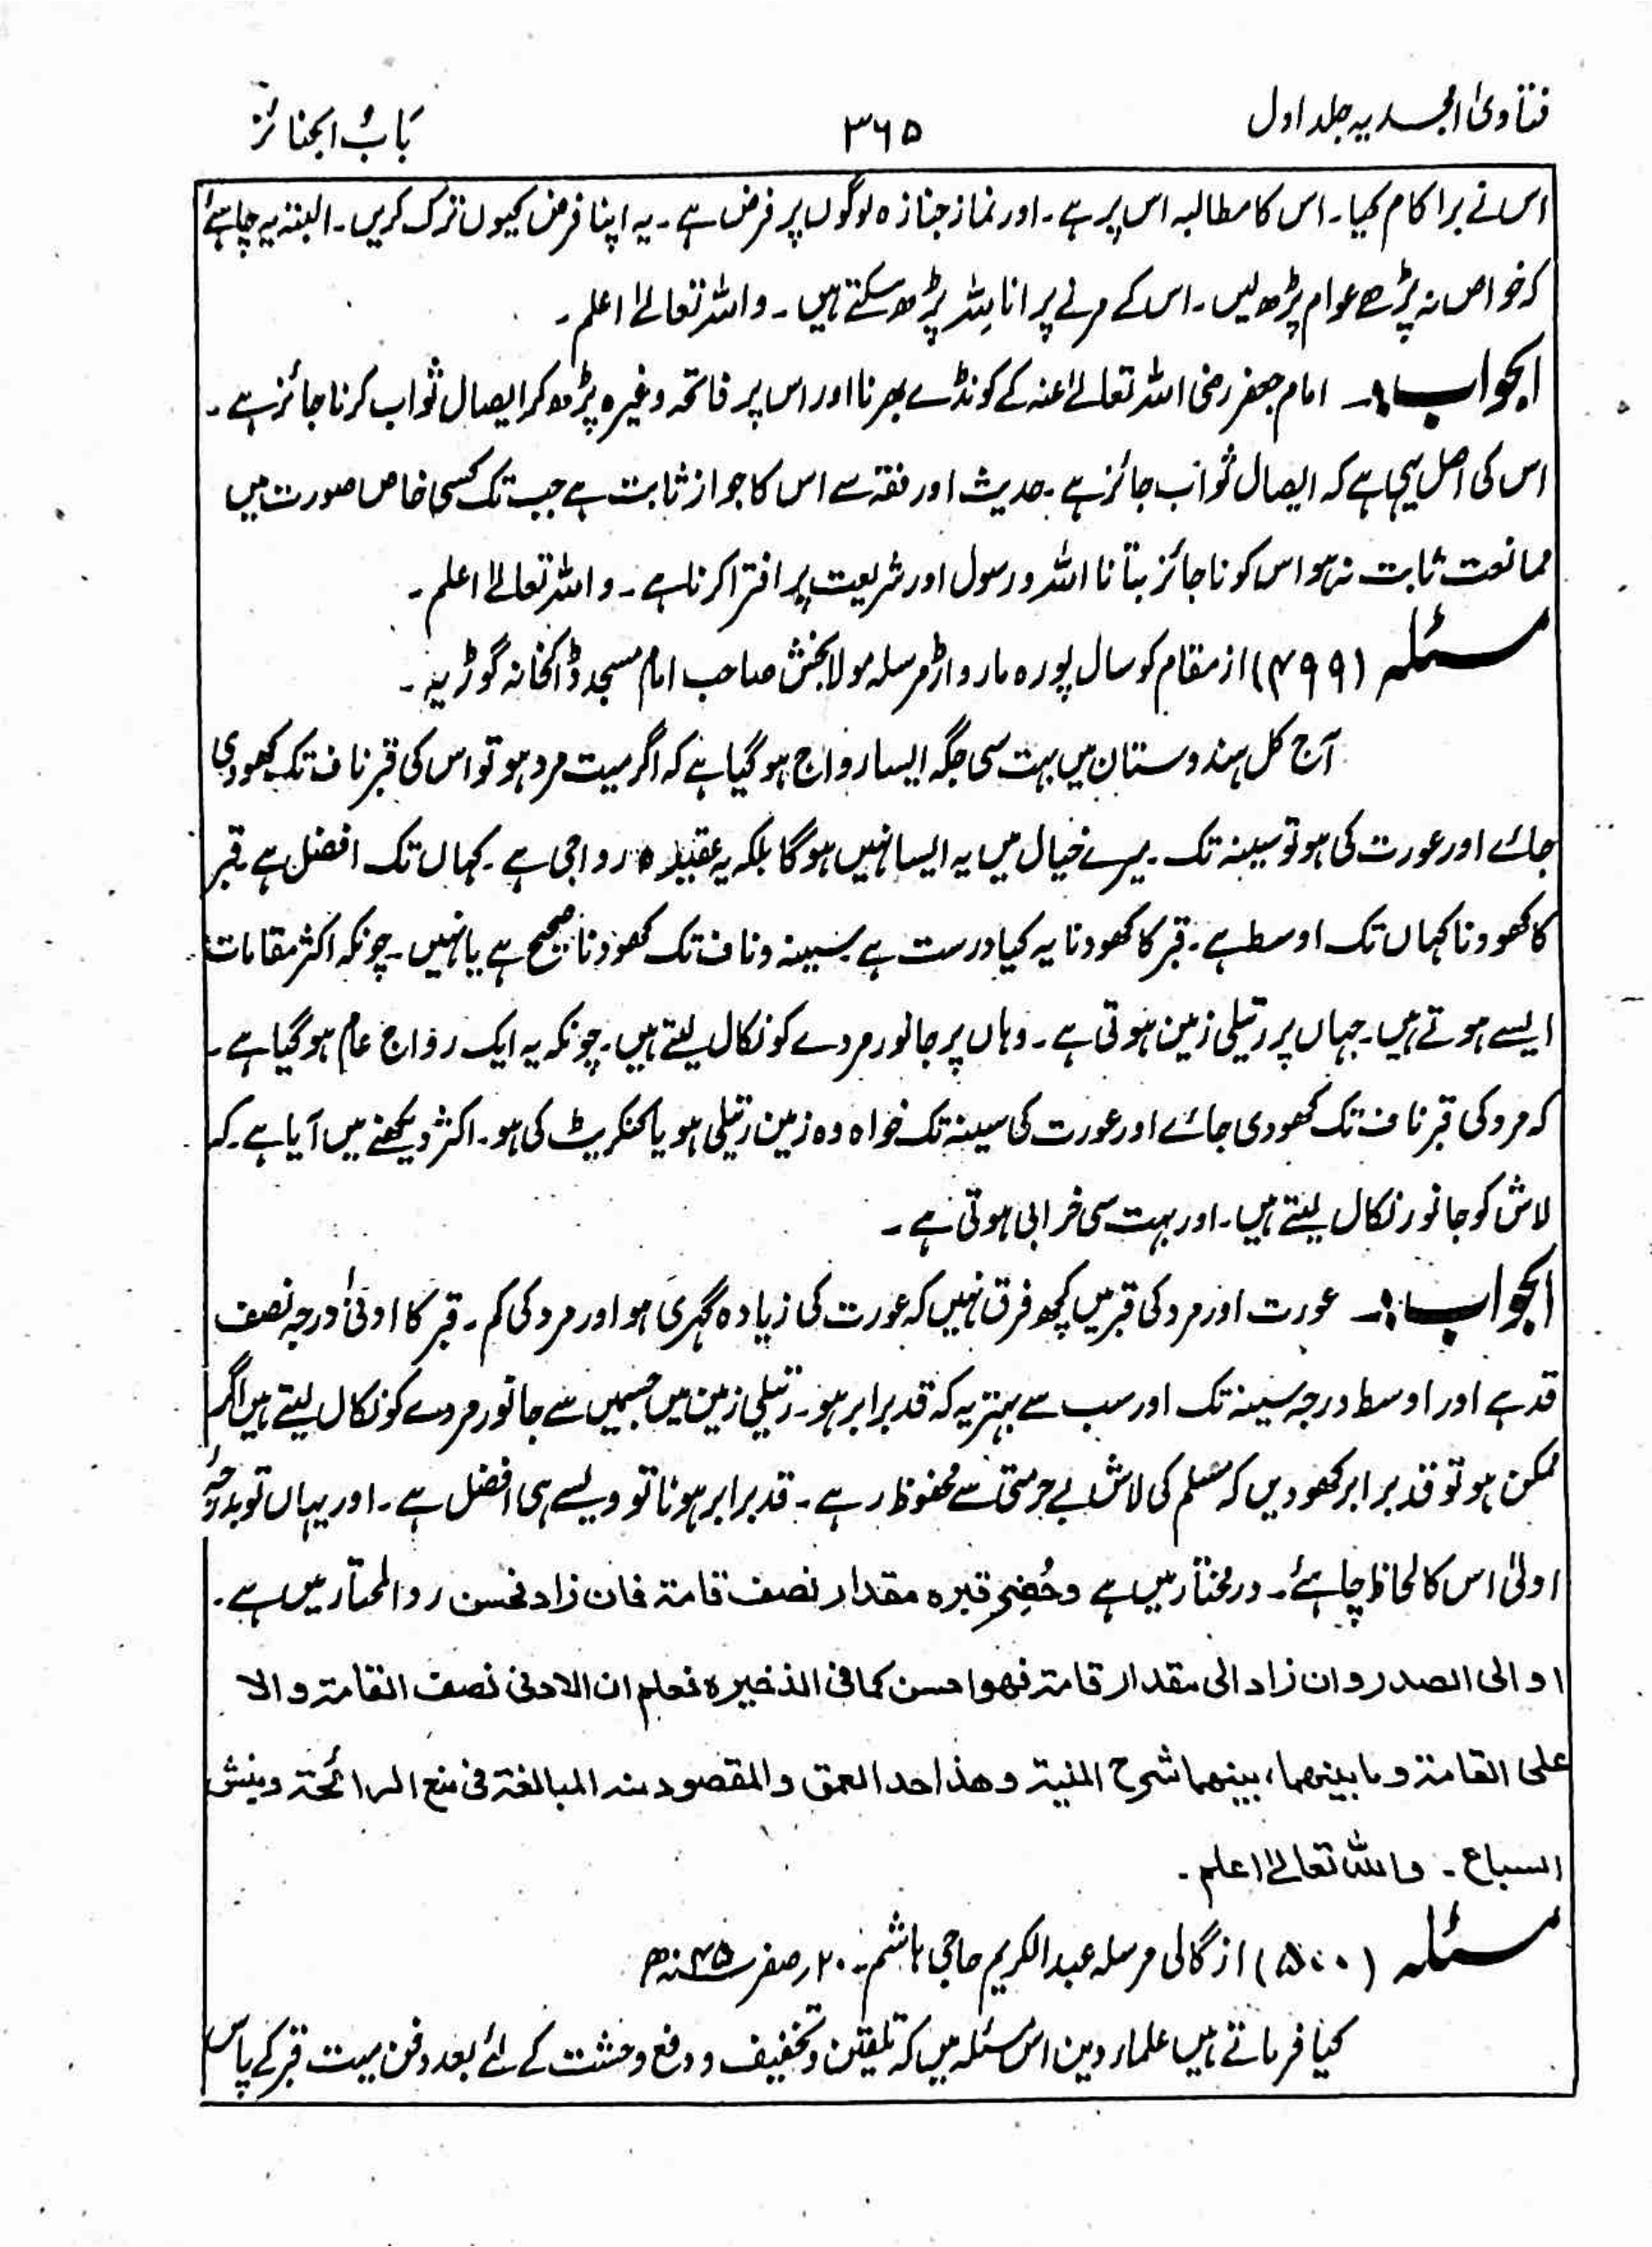 فتاویٰ امجدیہ جلد اول
۳۶۵
بَابُ الجنائز
اس نے برا کام کیا۔ اس کا مطالبہ اس پر ہے۔ اور نماز جنازہ لوگوں پر فرض ہے۔ یہ اپنا فرض کیوں ترک کریں۔ البتہ یہ چاہئے
کہ خواص نہ پڑھے عوام پڑھ لیں۔ اس کے مرنے پر انا للہ پڑھ سکتے ہیں۔ واللہ تعالےٰ اعلم۔
الجواب:۔ امام جعفر رضی اللہ تعالےٰ عنہ کے کونڈے بھرنا اور اس پر فاتحہ وغیرہ پڑھ کر ایصال ثواب کرنا جائز ہے۔
اس کی اصل یہی ہے کہ ایصال ثواب جائز ہے۔ حدیث اور فقہ سے اس کا جواز ثابت ہے جب تک کسی خاص صورت میں
ممانعت ثابت نہ ہو اس کو ناجائز بتانا اللہ و رسول اور شریعت پر افترا کرنا ہے۔ واللہ تعالےٰ اعلم۔
مسئلہ (۴۹۹) از مقام کوسال پورہ مارواڑ مرسلہ مولا بخش صاحب امام مسجد ڈاکخانہ گوڑیہ۔
آج کل ہندوستان میں بہت سی جگہ ایسا رواج ہو گیا ہے کہ اگر میت مرد ہو تو اس کی قبر ناف تک کھودی
جائے اور عورت کی ہو تو سینہ تک۔ میرے خیال میں یہ ایسا نہیں ہوگا بلکہ یہ عقیدہ رواجی ہے۔ کہاں تک افضل ہے قبر
کا کھودنا کہاں تک اوسط ہے۔ قبر کا کھودنا یہ کیا درست ہے سینہ و ناف تک کھودنا صحیح ہے یا نہیں۔ چونکہ اکثر مقامات
ایسے ہوتے ہیں۔ جہاں پر رتیلی زمین ہوتی ہے۔ وہاں پر جانور مردے کو نکال لیتے ہیں۔ چونکہ یہ ایک رواج عام ہو گیا ہے۔
کہ مرد کی قبر ناف تک کھودی جائے اور عورت کی سینہ تک خواہ وہ زمین رتیلی ہو یا کنکریٹ کی ہو۔ اکثر دیکھنے میں آیا ہے۔ کہ
لاش کو جانور نکال لیتے ہیں۔ اور بہت سی خرابی ہوتی ہے۔
الجواب:۔ عورت اور مرد کی قبر میں کچھ فرق نہیں کہ عورت کی زیادہ گہری ہو اور مرد کی کم۔ قبر کا ادنیٰ درجہ نصف
قد ہے اور اوسط درجہ سینہ تک اور سب سے بہتر یہ کہ قد برابر ہو۔ رتیلی زمین میں جسمیں سے جانور مردے کو نکال لیتے ہیں اگر
ممکن ہو تو قد برابر کھودیں کہ مسلم کی لاش بے حرمتی سے محفوظ رہے۔ قد برابر ہونا تو ویسے ہی افضل ہے۔ اور یہاں تو بدرجۂ
اولیٰ اس کا لحاظ چاہئے۔ درمختار میں ہے وحُفِر قبرہ مقدار نصف قامۃ فان زاد فحسن ردالمحتار میں ہے۔
او الی الصدر وان زاد الی مقدار قامۃ فھو احسن کما فی الذخیرہ فعلم ان الادنی نصف القامۃ والا
علی القامۃ وما بینھما، بینھما شرح المنیۃ وھذا حد العمق والمقصود منہ المبالغۃ فی منع الرائحۃ ونبش
السباع۔ واللہ تعالےٰ اعلم۔
مسئلہ (۵۰۰) از گالی مرسلہ عبدالکریم حاجی ہاشم۔ ۲۰ر صفر ۴۵ھ
کیا فرماتے ہیں علماء دین اس مسئلہ میں کہ تلقین و تخفیف و دفع وحشت کے لئے بعد دفن میت قبر کے پاس